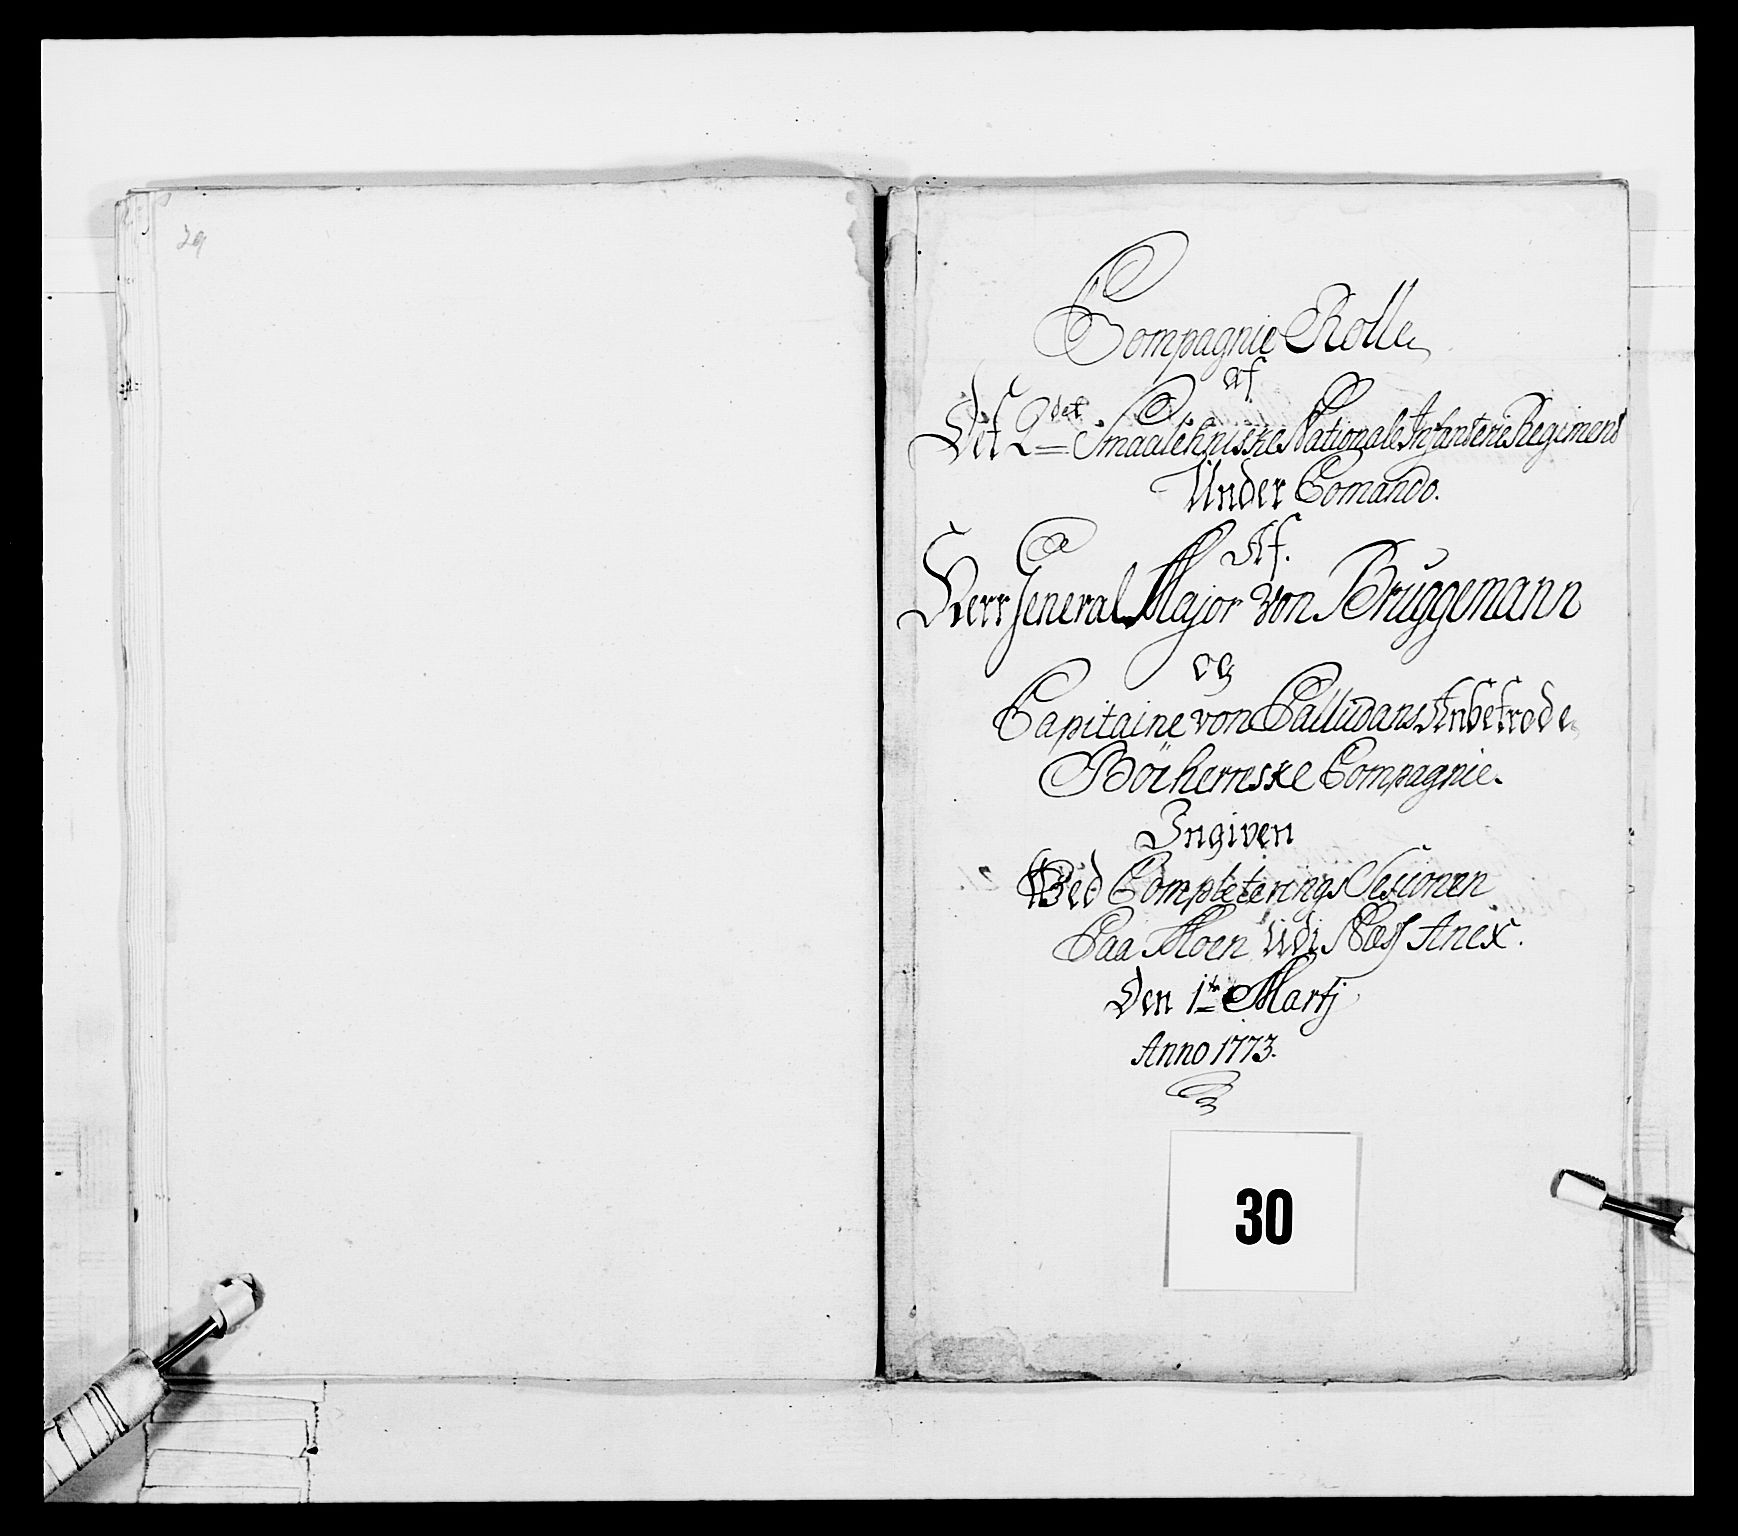 29
Compagnie Rolle
af
Det 2det Smaalehnske Nationale Infanterie Regiment
Under Comando.
Af.
Herr General Major von Brüggemann
og
Capitaine von Palludans Anbetrode
Compagnie.
Ingiven
Ved Completerings Sessionen
Paa Moen Udi Næss Anex.
Den 1te Martj
Anno 1773.
30